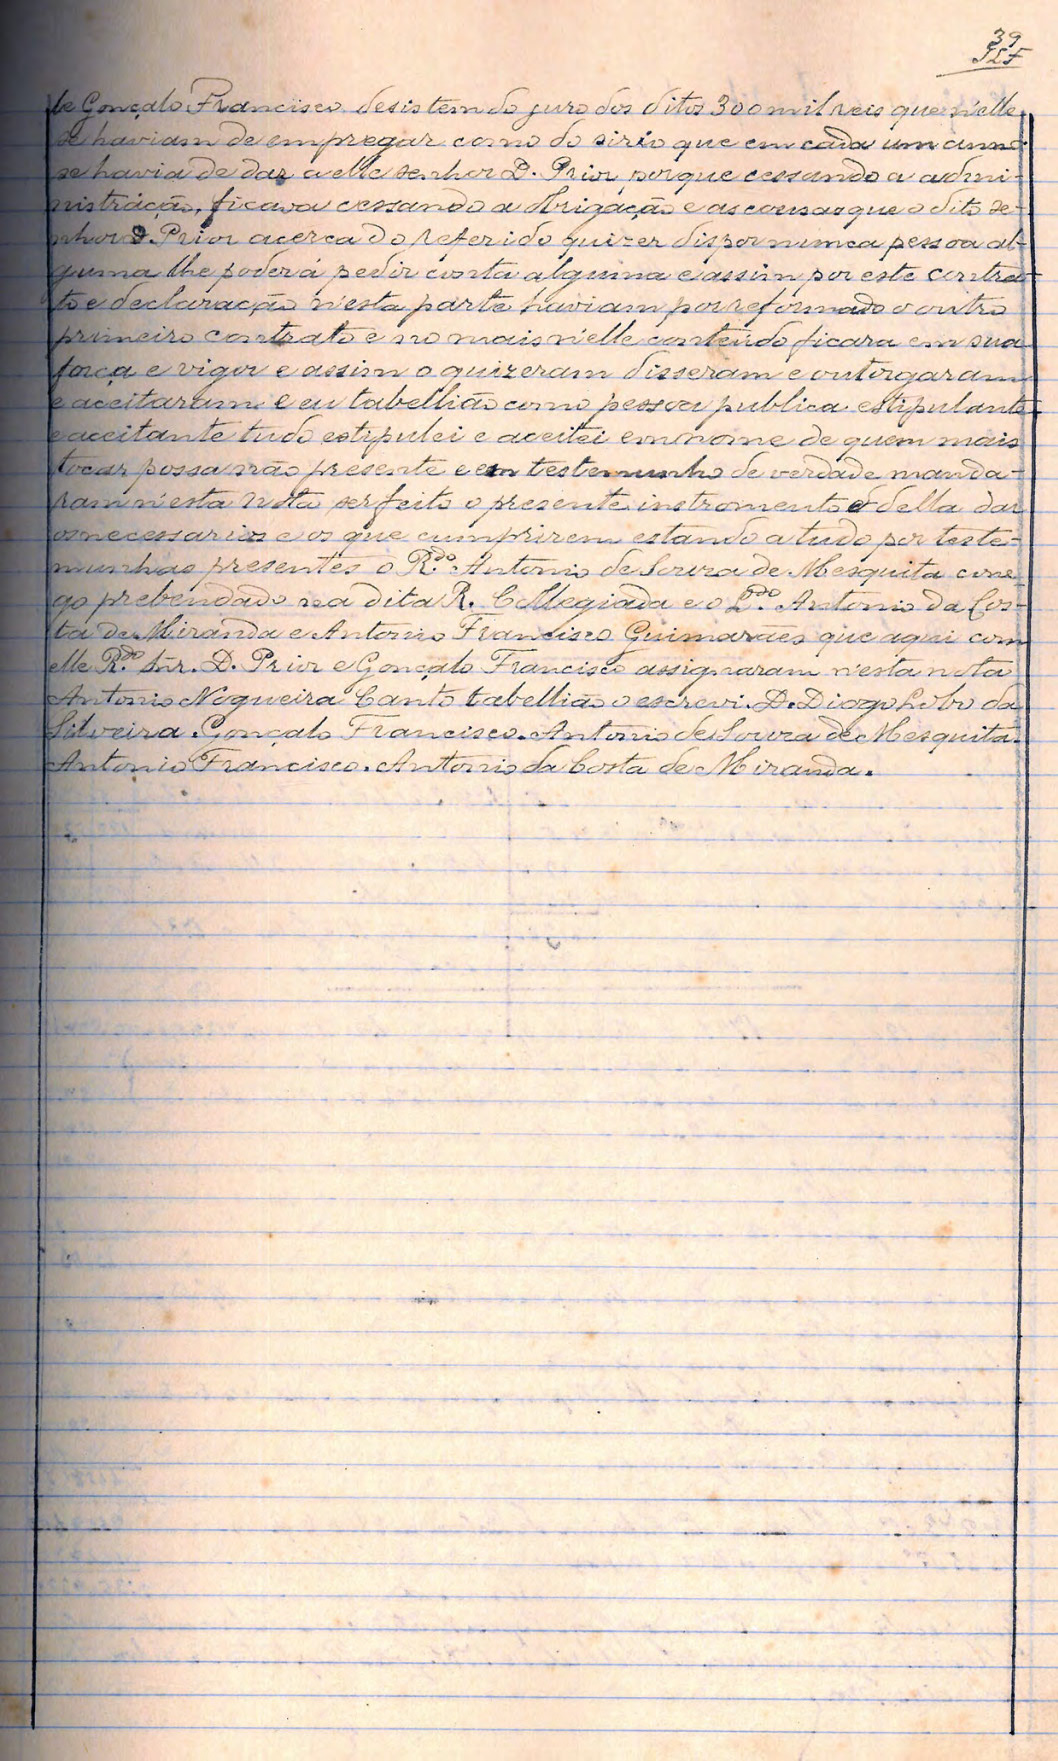 39
le Gonçalo Francisco desistem do juro dos ditos 300 mil reis que n'elle
se haviam de empregar como do sirio que em cada um anno
se havia de dar a elle senhor D. Prior, porque cessando a admi-
nistração, ficava cessando a obrigação e as cousas que o dito se-
nhor D. Prior acerca do referido quizer dispor nunca pessoa al-
guma lhe poderá pedir conta alguma e assim por este contra-
to e declaração n'esta parte haviam por reformado o outro
primeiro contrato e no mais n'elle conteúdo ficara em sua
força e vigor e assim o quizeram disseram e outorgaram
e aceitaram e eu tabellião como pessoa publica estipulante
e aceitante tudo estipulei e aceitei em nome de quem mais
tocar possa não presente e em testemunho de verdade manda-
ram n'esta nota ser feito o presente instromento e d'ella dar
os necessarios e os que cumprirem estando a tudo por teste-
munhas presentes o R.do Antonio de Souza de Mesquita cone-
go prebendado na dita R. Collegiada e o L.do Antonio da Cos-
ta de Miranda e Antonio Francisco Guimarães que aqui com
elle R.do Snr. D. Prior e Gonçalo Francisco assignaram n'esta nota
Antonio Nogueira Canto tabellião o escrevi. D. Diogo Lobo da
Silveira. Gonçalo Francisco. Antonio de Souza de Mesquita.
Antonio Francisco. Antonio da Costa de Miranda.